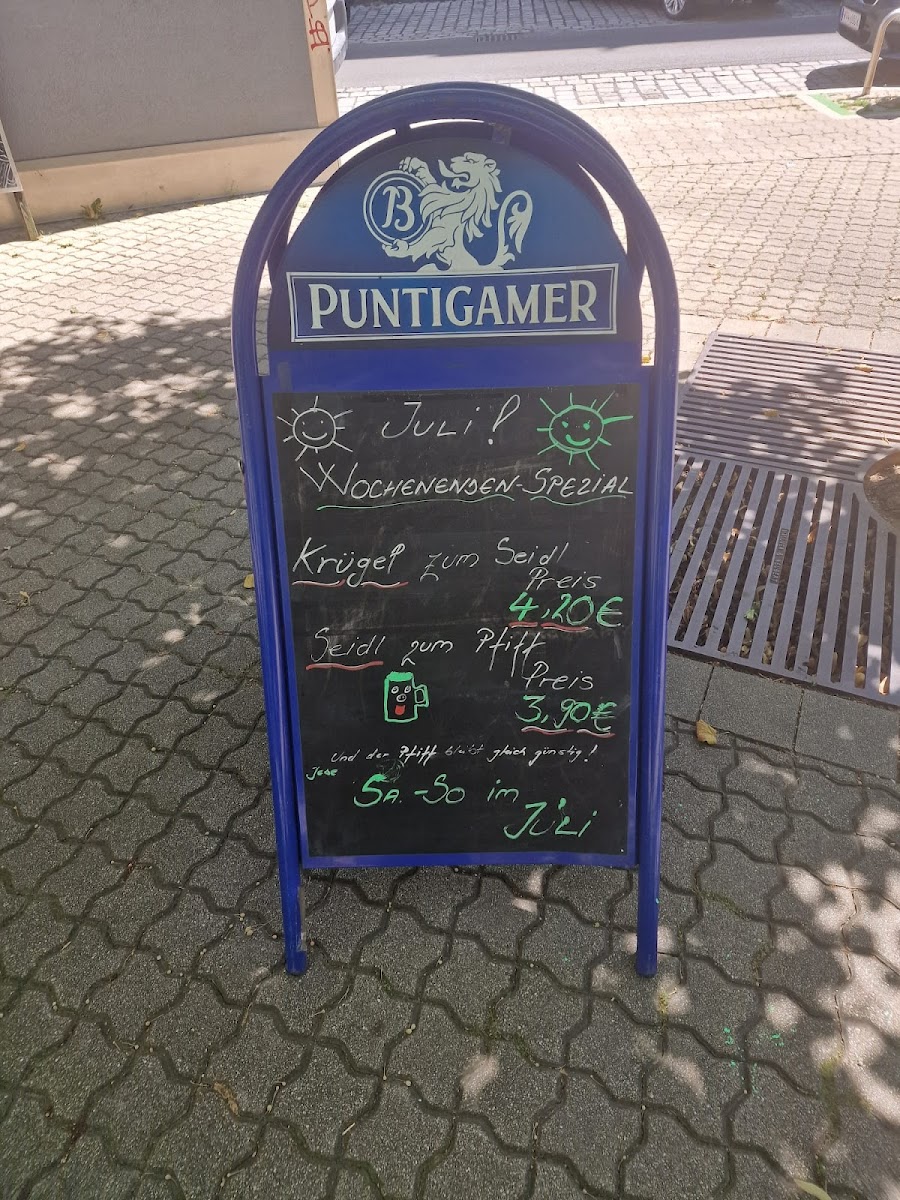 B
PUNTIGAMER
JULI!
WOCHENENDEN-SPEZIAL
Krügel zum Seidl
Preis
4,20€
Seidl zum Pfiff
Preis
3,90€
Und der Pfiff bleibt gleich günstig!
Jede
SA.-SO im
JULI